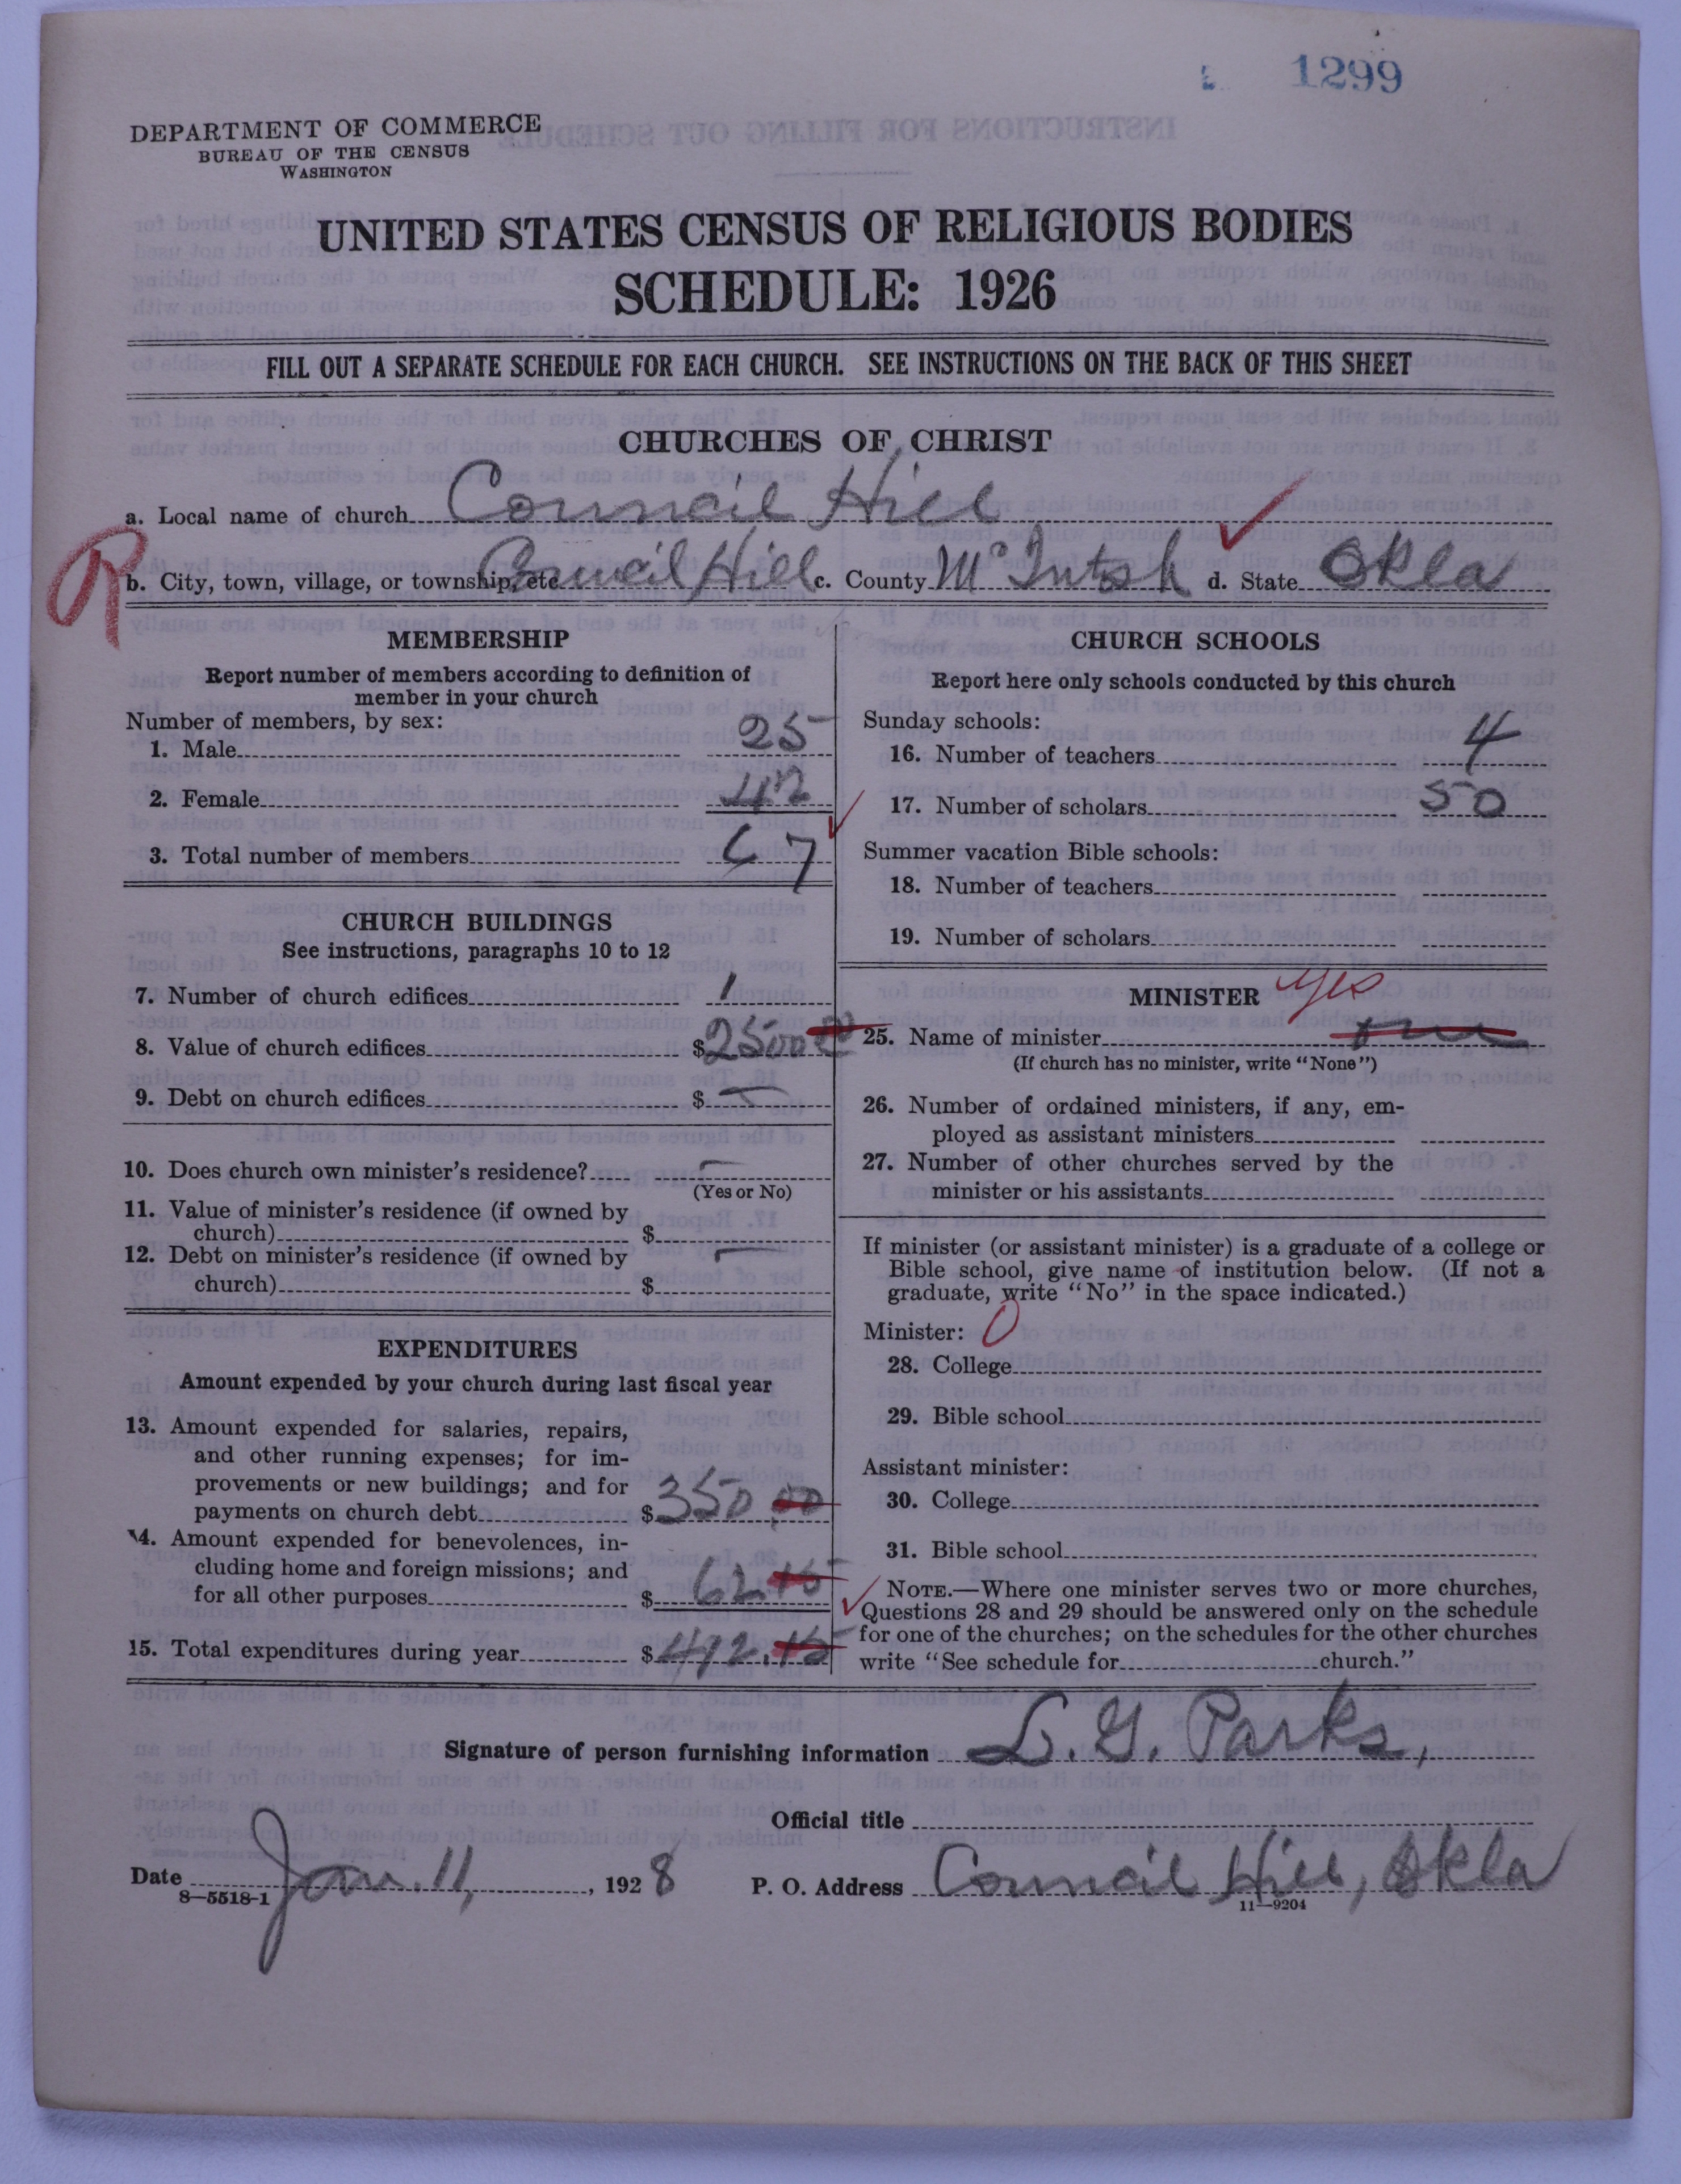 1299
DEPARTMENT OF COMMERCE
BUREAU OF THE CENSUS
WASHINGTON
UNITED STATES CENSUS OF RELIGIOUS BODIES
SCHEDULE: 1926
FILL OUT A SEPARATE SCHEDULE FOR EACH CHURCH. SEE INSTRUCTIONS ON THE BACK OF THIS SHEET
CHURCHES OF CHRIST
a. Local name of church Council Hill
R
b. City, town, village, or township, etc. Council Hill c. County McIntosh d. State Okla
MEMBERSHIP
Report number of members according to definition of
member in your church
Number of members, by sex:
1. Male 25
2. Female 42
3. Total number of members 67
CHURCH BUILDINGS
See instructions, paragraphs 10 to 12
7. Number of church edifices 1
8. Value of church edifices $2500.00
9. Debt on church edifices $ —
10. Does church own minister's residence? —
(Yes or No)
11. Value of minister's residence (if owned by
church) $
12. Debt on minister's residence (if owned by —
church) $
EXPENDITURES
Amount expended by your church during last fiscal year
13. Amount expended for salaries, repairs,
and other running expenses; for im-
provements or new buildings; and for
payments on church debt $350.00
14. Amount expended for benevolences, in-
cluding home and foreign missions; and
for all other purposes $ 62.15
15. Total expenditures during year $412.15
CHURCH SCHOOLS
Report here only schools conducted by this church
Sunday schools:
16. Number of teachers 4
17. Number of scholars 50
Summer vacation Bible schools:
18. Number of teachers
19. Number of scholars
MINISTER yes
25. Name of minister
(If church has no minister, write "None")
26. Number of ordained ministers, if any, em-
ployed as assistant ministers
27. Number of other churches served by the
minister or his assistants
If minister (or assistant minister) is a graduate of a college or
Bible school, give name of institution below. (If not a
graduate, write "No" in the space indicated.)
Minister: 0
28. College
29. Bible school
Assistant minister:
30. College
31. Bible school
NOTE.—Where one minister serves two or more churches,
Questions 28 and 29 should be answered only on the schedule
for one of the churches; on the schedules for the other churches
write "See schedule for church."
Signature of person furnishing information L. G. Parks,
Official title
Date Jan. 11, 1928 P. O. Address Council Hill, Okla
8—5518-1
11—9204